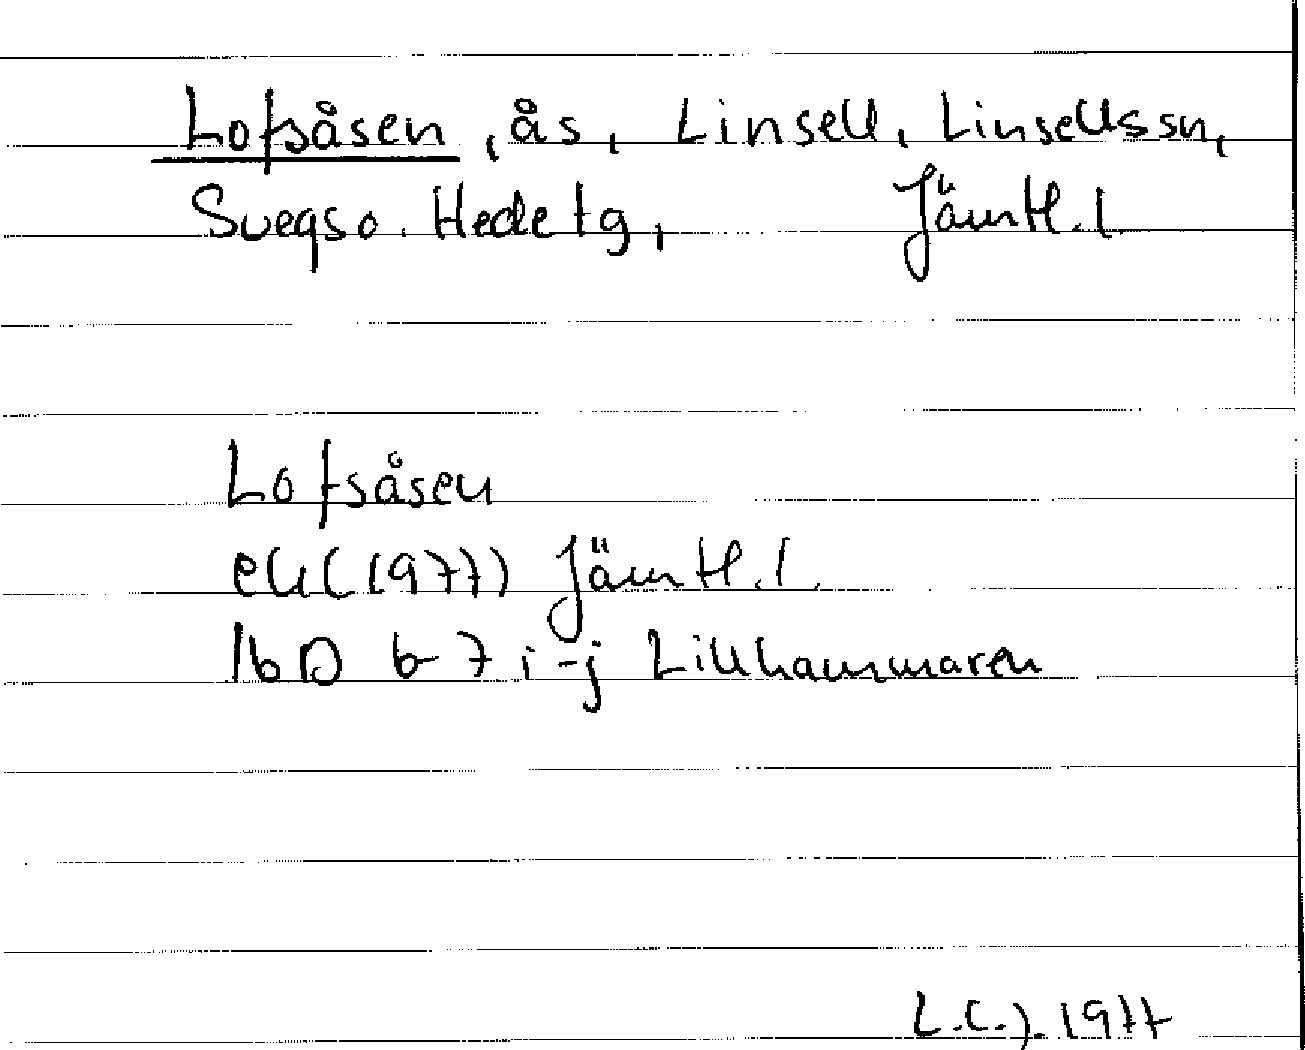 Lofsåsen, ås, Linsell, Linsells sn,
Svegs o. Hede tg, Jämtl. l.
Lofsåsen
ek (1977) Jämtl. l.
16D 6-7 i-j Lillhammaren
L.C.J. 1977